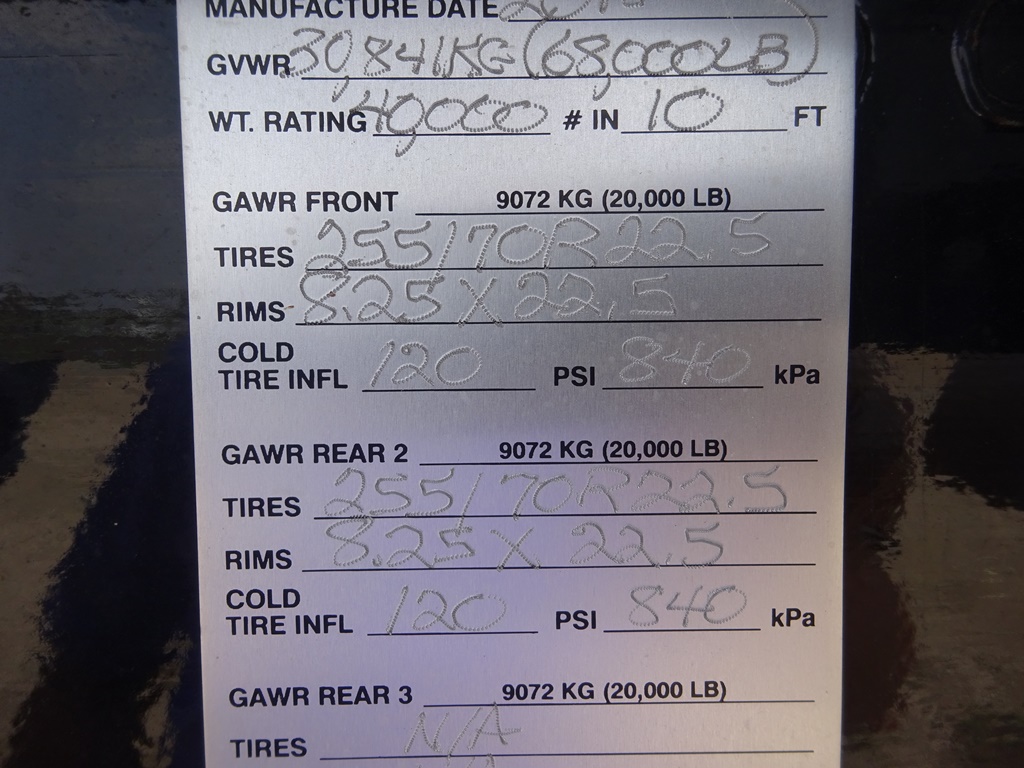 MANUFACTURE DATE
GVWR 30,841KG (68,000LB)
WT. RATING 40,000 # IN 10 FT
GAWR FRONT 9072 KG (20,000 LB)
TIRES 255/70R22.5
RIMS 8.25 X 22.5
COLD
TIRE INFL 120 PSI 840 kPa
GAWR REAR 2 9072 KG (20,000 LB)
TIRES 255/70R22.5
RIMS 8.25 X 22.5
COLD
TIRE INFL 120 PSI 840 kPa
GAWR REAR 3 9072 KG (20,000 LB)
TIRES N/A